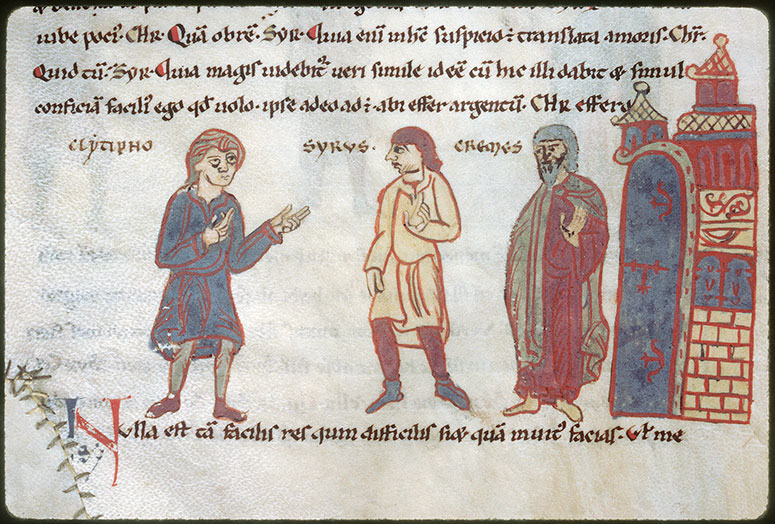 iube poci᷒. CHR. Quā obrē. SYR. Quia enī inhc̄ suspicio ÷ translata amoris. Chr.
Quid tū. SyR. Quia magis uidebit᷑ ueri simile id eē cū hic illi dabit & simul
conficiā facili᷒ ego qđ uolo. ipse adeo ad÷. abi effer argentū. CHR effero
CLYTIPHO SYRUS. CREMES
Nulla est tā facilis res quin difficilis siet quā inuit᷒ facias. Vl̄ me